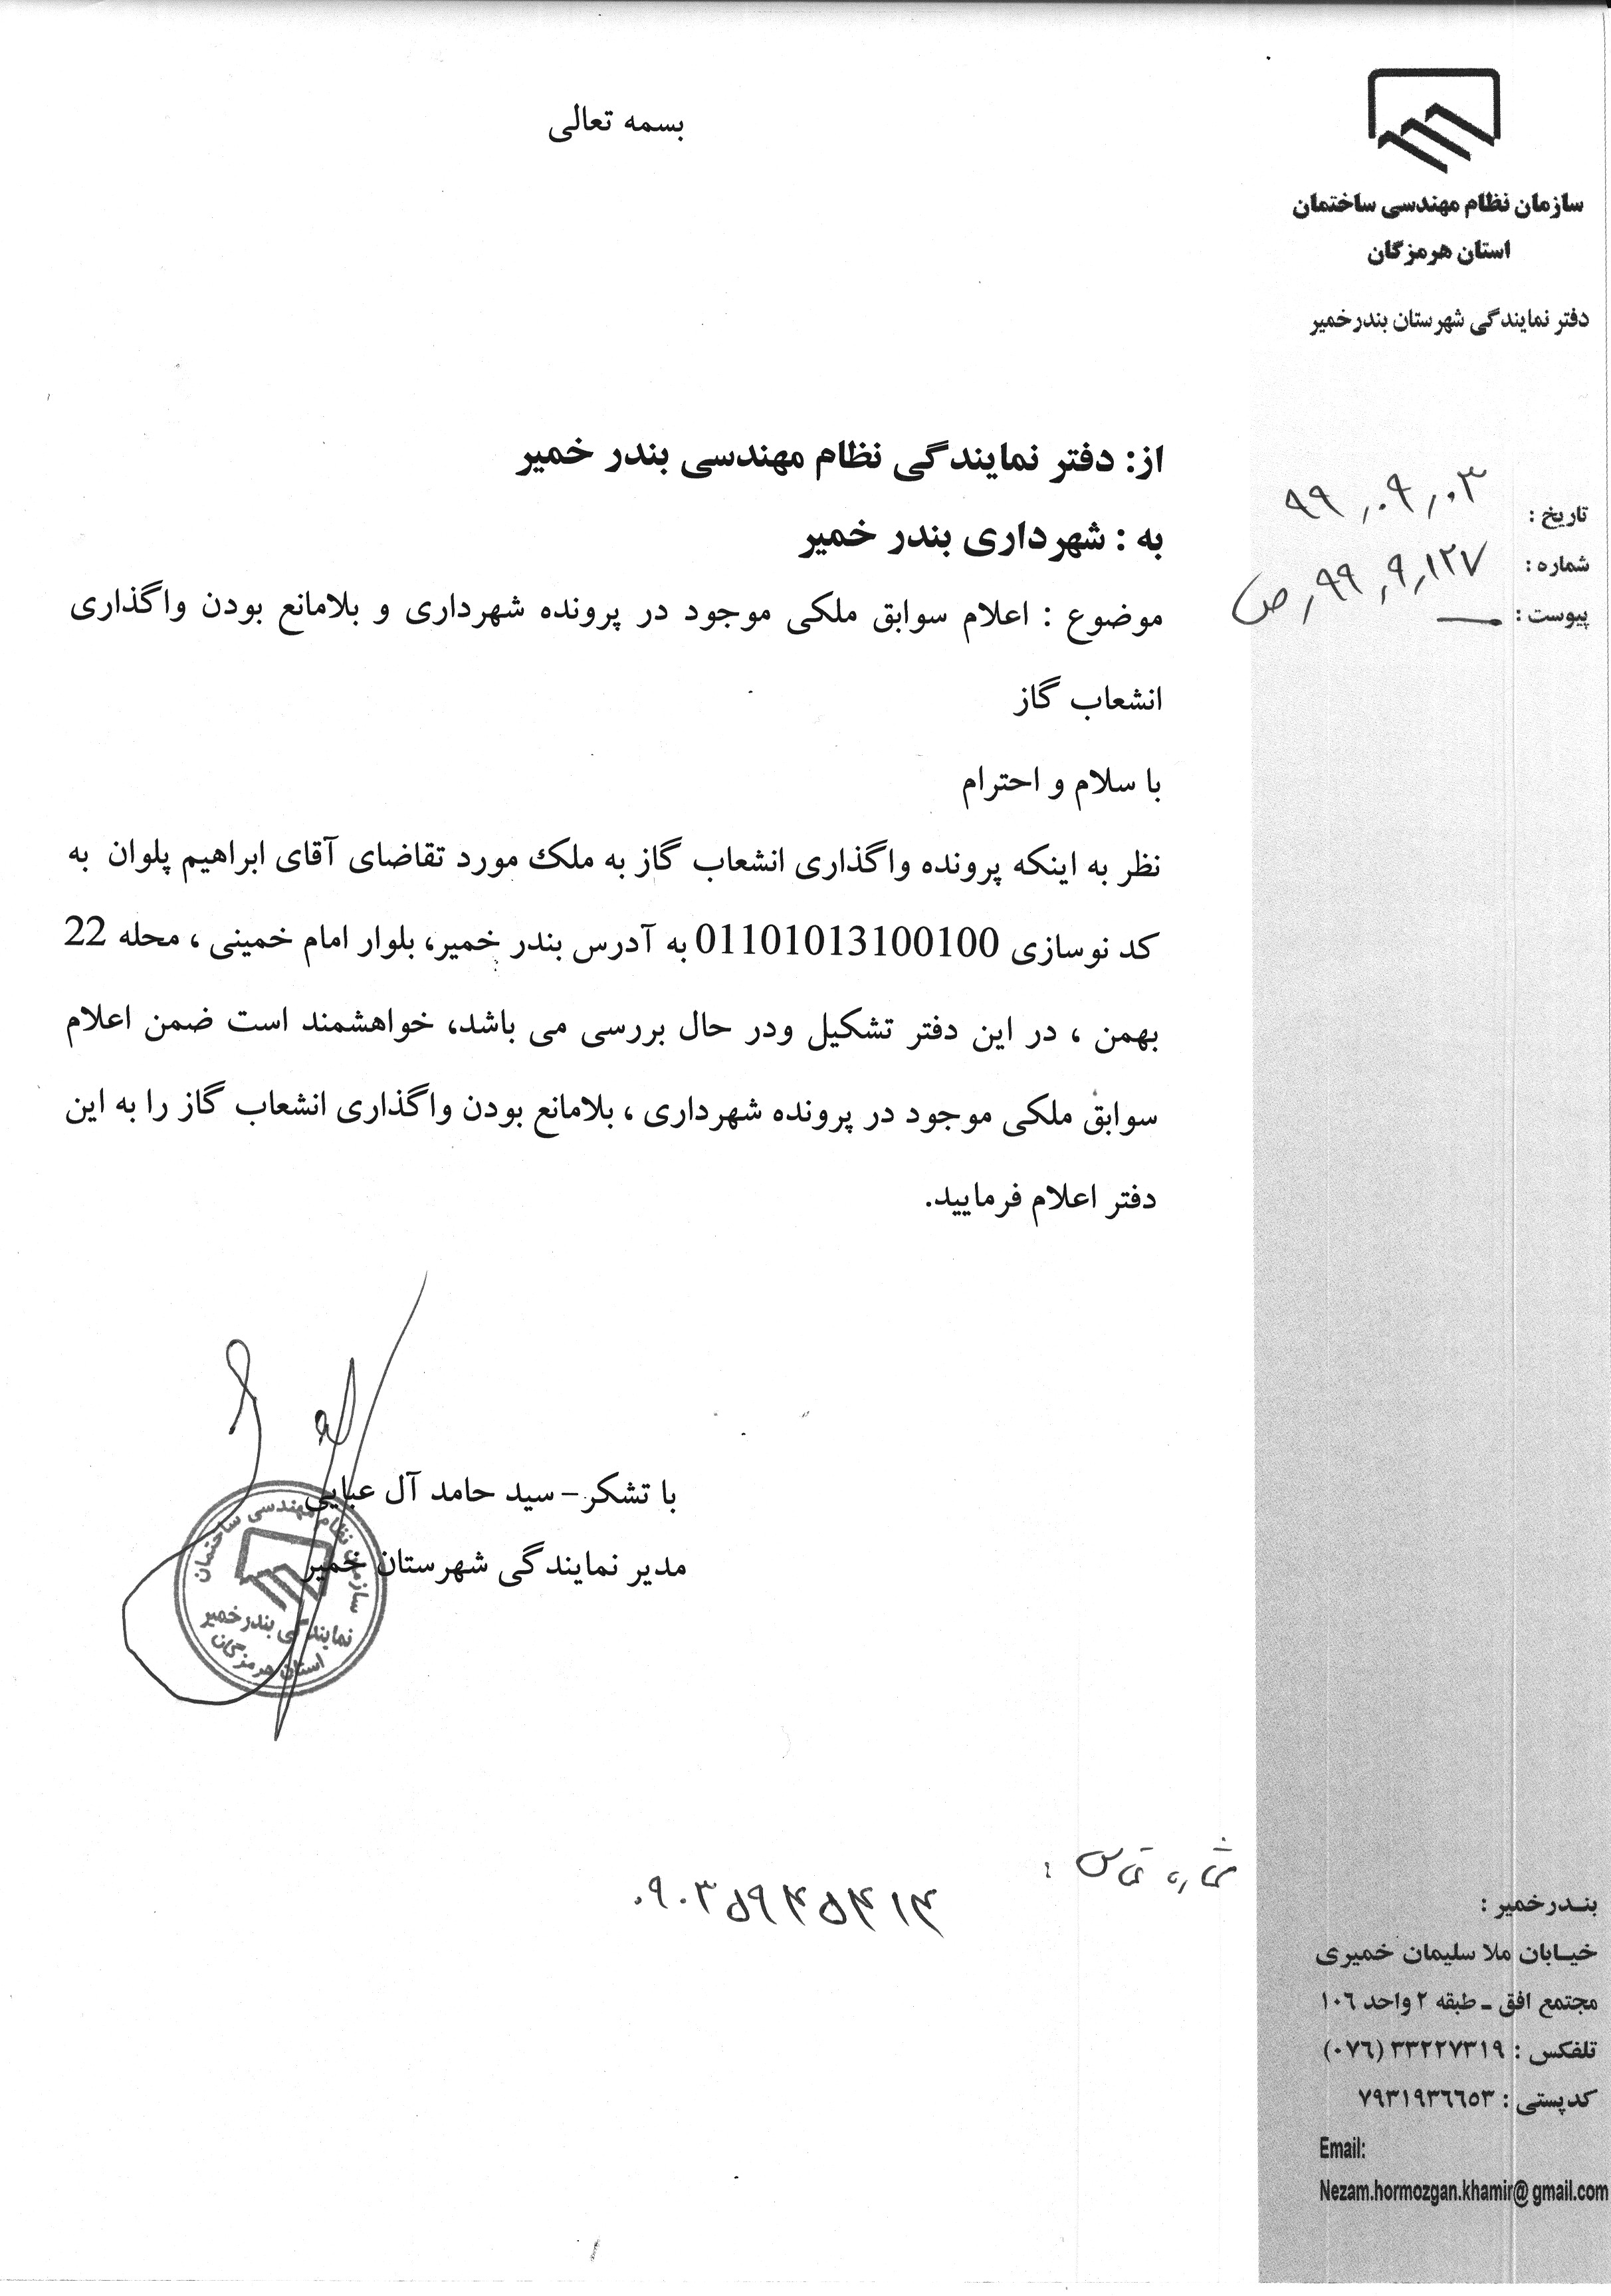 بسمه تعالی
سازمان نظام مهندسی ساختمان
استان هرمزگان
دفتر نمایندگی شهرستان بندرخمیر
تاریخ : ۹۹,۰۹,۰۳
شماره : ۱۲۷,۹,۹۹,ص
پیوست : —
از: دفتر نمایندگی نظام مهندسی بندر خمیر
به : شهرداری بندر خمیر
موضوع : اعلام سوابق ملکی موجود در پرونده شهرداری و بلامانع بودن واگذاری
انشعاب گاز
با سلام و احترام
نظر به اینکه پرونده واگذاری انشعاب گاز به ملک مورد تقاضای آقای ابراهیم پلوان به
کد نوسازی 01101013100100 به آدرس بندر خمیر، بلوار امام خمینی ، محله 22
بهمن ، در این دفتر تشکیل ودر حال بررسی می باشد، خواهشمند است ضمن اعلام
سوابق ملکی موجود در پرونده شهرداری ، بلامانع بودن واگذاری انشعاب گاز را به این
دفتر اعلام فرمایید.
با تشکر – سید حامد آل عبایی
مدیر نمایندگی شهرستان خمیر
سازمان نظام مهندسی ساختمان
نمایندگی بندرخمیر
استان هرمزگان
شماره تماس :
۰۹۰۳۵۹۴۵۴۱۴
بندرخمیر :
خیابان ملا سلیمان خمیری
مجتمع افق ـ طبقه ۲ واحد ۱۰۶
تلفکس : ۳۳۲۲۷۳۱۹ (۰۷۶)
کدپستی : ۷۹۳۱۹۳۶۶۵۳
Email:
Nezam.hormozgan.khamir@gmail.com